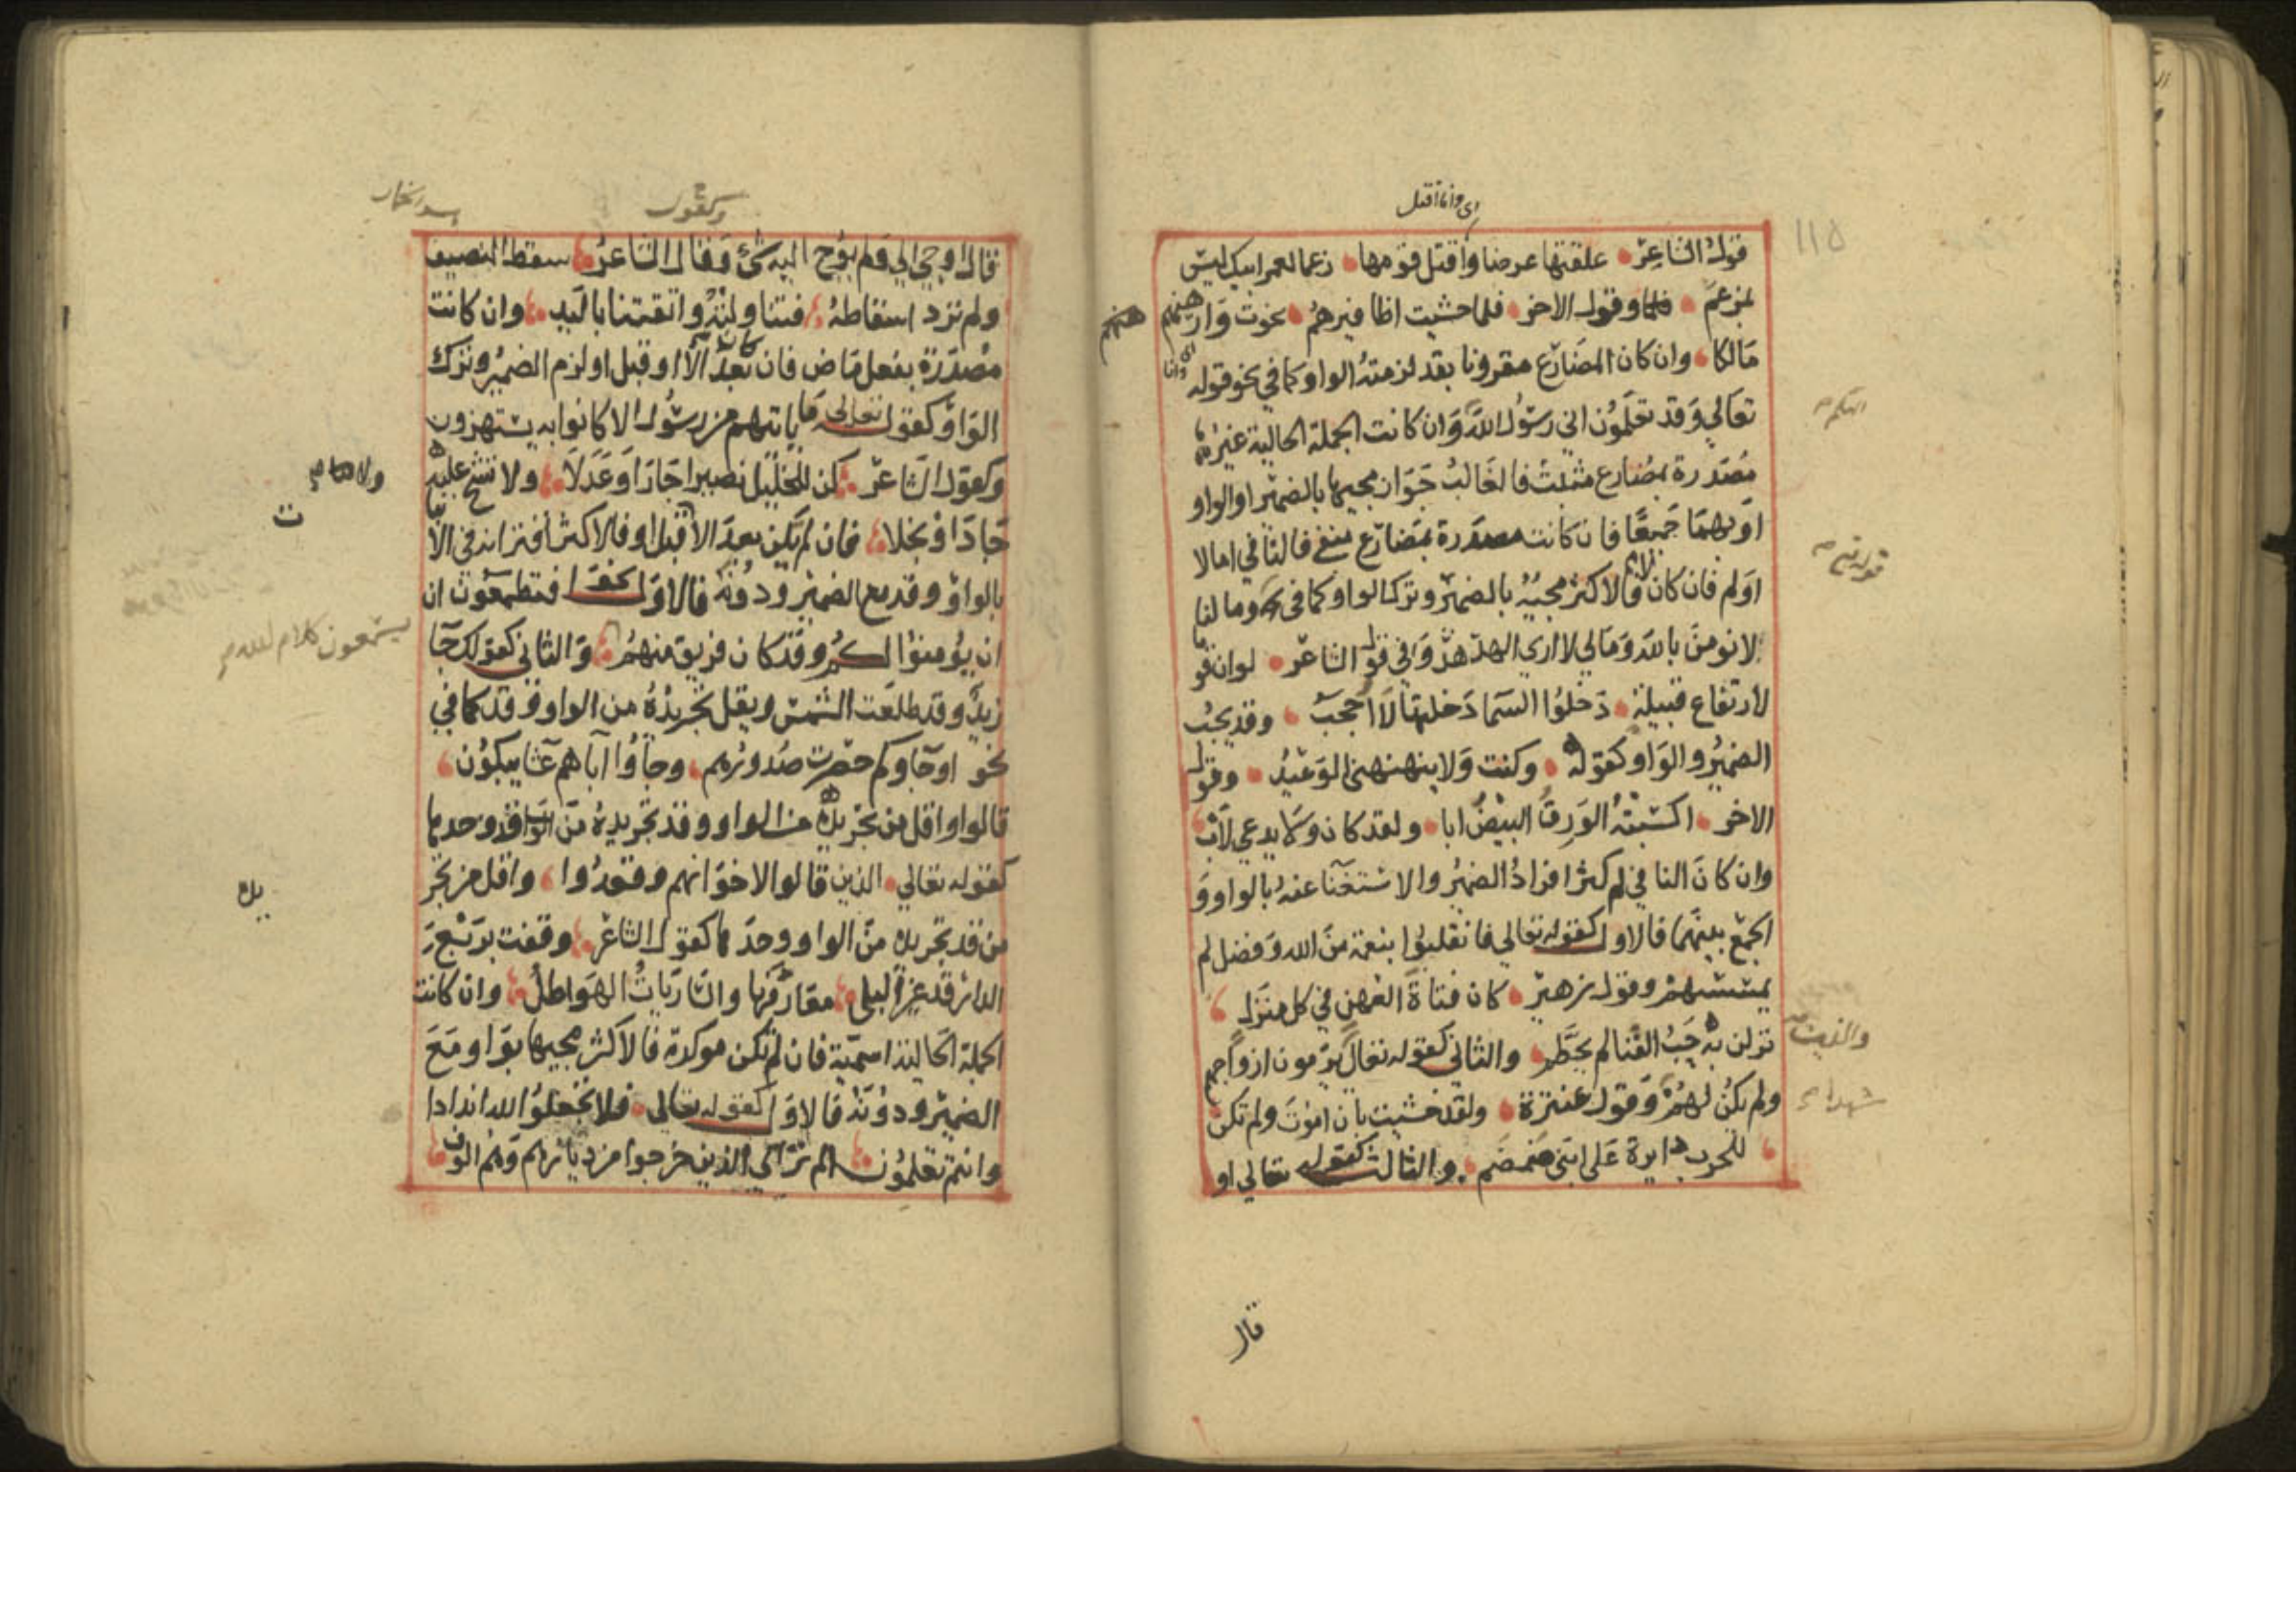 اى وانا اقتل
١١٥
قول الشاعر علقتها عرضا واقتل قومها زعما لعمر ابيك ليس
بمزعم وقول الاخر فلما خشيت اظافيرهم نجوت وارهنهم
هنهم
مالكا وان كان المضارع مقرونا بقد لزمته الواو كما في نحو قوله
اى وانا
تعالي وقد تعلمون اني رسول الله وان كانت الجملة الحالية غير
اليكم
مصدرة بمضارع مثبت فالغالب جواز مجيها بالضمير او الواو
او بهما جميعا فان كانت مصدرة بمضارع منفي فالنافي اما لا
او لم فان كان لا فالاكثر مجيه بالضمير وترك الواو كما في وما لنا
قوله تع
لا نومن بالله وما لي لا اري الهدهد وفي قول الشاعر لو ان قوما
لارتفاع قبيلة دخلوا السما دخلتها لا احجب وقد يجب
الضمير والواو كقوله وكنت ولا ينهنهني الوعيد وقول
الاخر اكسبته الورق البيض ابا ولقد كان ولا يدعي لاب
وان كان النافي لم كثر افراد الضمير والاستغنا عنه بالواو و
الجمع بينهما فالاول كقوله تعالي فانقلبوا بنعمة من الله وفضل لم
يمسسهم وقول زهير كان فتاة العهن في كل منزل
نزلن به حب الفنا لم يحطم والثاني كقوله تعالي يرمون ازواجهم
والذين
ولم يكن لهم وقول عنترة ولقد خشيت بان اموت ولم تكن
شهداء
للحرب دايرة على ابني ضمضم والثالث كقوله تعالي او
قال
وكقول
قال اوحي الي ولم يوح اليه شئ وقال الشاعر سقط النصيف
ولم ترد اسقاطه فتناولته واتقتنا باليد وان كانت
مصدرة بفعل ماض فان كان بعد الا او قبل او لزم الضمير وترك
الواو كقوله تعالى ما ياتيهم من رسول الا كانوا به يستهزون
وكقول الشاعر كن للخليل نصيرا جار او عدلا ولا تشح عليه
جاد او بخلا فان لم يكن بعد الا قبل او فالاكثر اقترانه في الا
بالواو وقد مع الضمير ودونه فالاول كقوله افتطمعون ان
ان يؤمنوا لكم وقد كان فريق منهم والثاني كقولك جا
يسمعون كلام الله
زيد وقد طلعت الشمس ويقل تجريده من الواو وقد كما في
نحو او جاوكم حصرت صدورهم وجاؤا اباهم عشا يبكون
قالوا واقل من تجريده من الواو وقد تجريده من قد وحدها
كقوله تعالي الذين قالوا لاخوانهم وقعدوا واقل من تجر
يده
من قد تجريده من الواو وحدها كقول الشاعر وقفت بربع
الدار قد غير البلى معارفها والساريات الهواطل وان كانت
الجملة الحالية اسمية فان لم تكن موكدة فالاكثر مجيها بواو مع
الضمير ودونه فالاول كقوله تعالى فلا تجعلوا لله اندادا
وانتم تعلمون الم تر الي الذين خرجوا من ديارهم وهم الوف